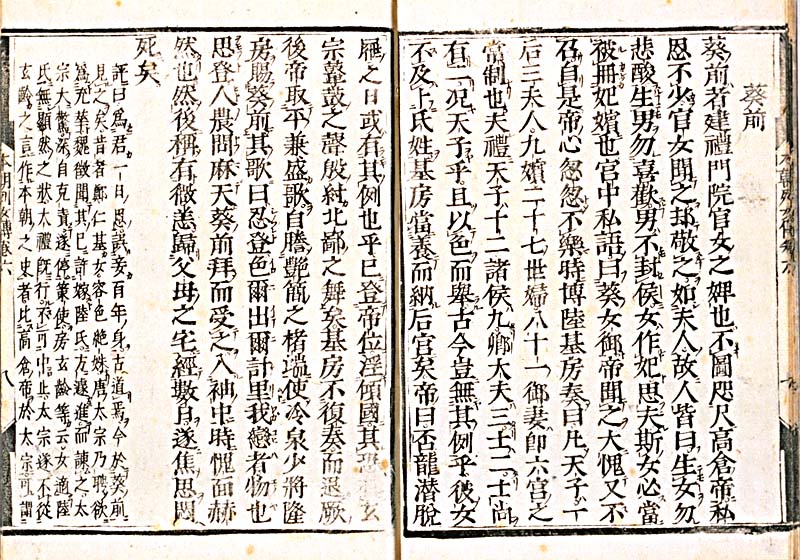 葵前
葵前者建禮門院官女之婢也不圖咫尺高倉帝私
恩不少官女聞之却敬之如夫人故人皆曰生女勿
悲酸生男勿喜歡男不封侯女作妃思夫斯女必當
被冊妃嬪也宮中私語曰葵女御帝聞之大愧又不
召自是帝心忽忽不樂時博陸基房奏曰凡天子一
后三夫人九嬪二十七世婦八十一御妻即六宮之
常制也夫禮天子十二諸侯九卿大夫三士二士尚
有二況天子乎且以色而舉古今豈無其例乎彼女
不及上氏姓基房當養而納后宮矣帝曰否龍潜脫
屣之日或有其例也乎已登帝位淫傾國其玄
宗鼙鼓之聲殷紂北鄙之舞矣基房不復奏而退厥
後帝取平兼盛歌自謄艷簡之楮端使冷泉少將隆
房賜葵前其歌曰忍登色爾出爾計里我戀者物也
思登人農問麻天葵前拜而受之入袖中時愧面赫
然也然後稱有微恙歸父母之宅經數日遂焦思悶
死矣
託曰爲君一日恩誤妾百年身古道焉今於葵前
見之矣昔者鄭仁基女容色絶姝唐太宗乃聘欲
爲充華魏徵聞其已許嫁陸氏方遽進而諫之太
宗大驚深自克責遂停策使房玄齡等云女適陸
氏無顯然之狀大禮既行不可中止太宗遂不從
玄齡之言作本朝之史者比高倉帝於太宗可謂
本朝列女傳卷六
八